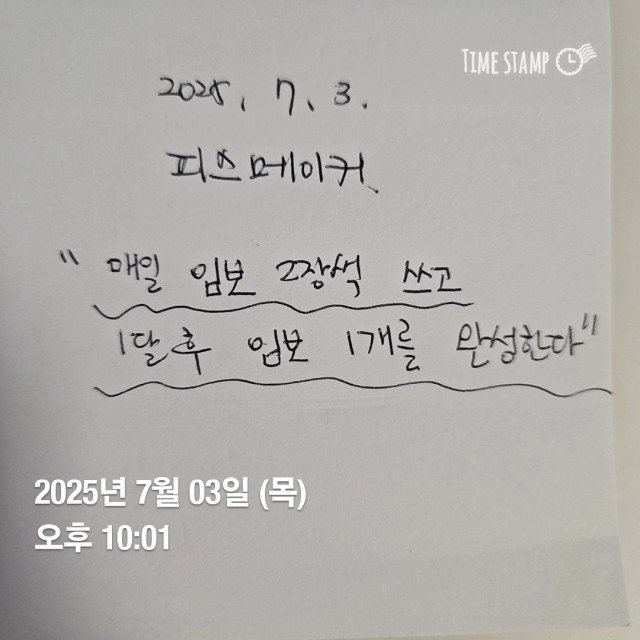 TIME STAMP
2025. 7. 3.
피스메이커.
"매일 임보 2장색 쓰고
1달후 임보 1개를 완성한다"
2025년 7월 03일 (목)
오후 10:01